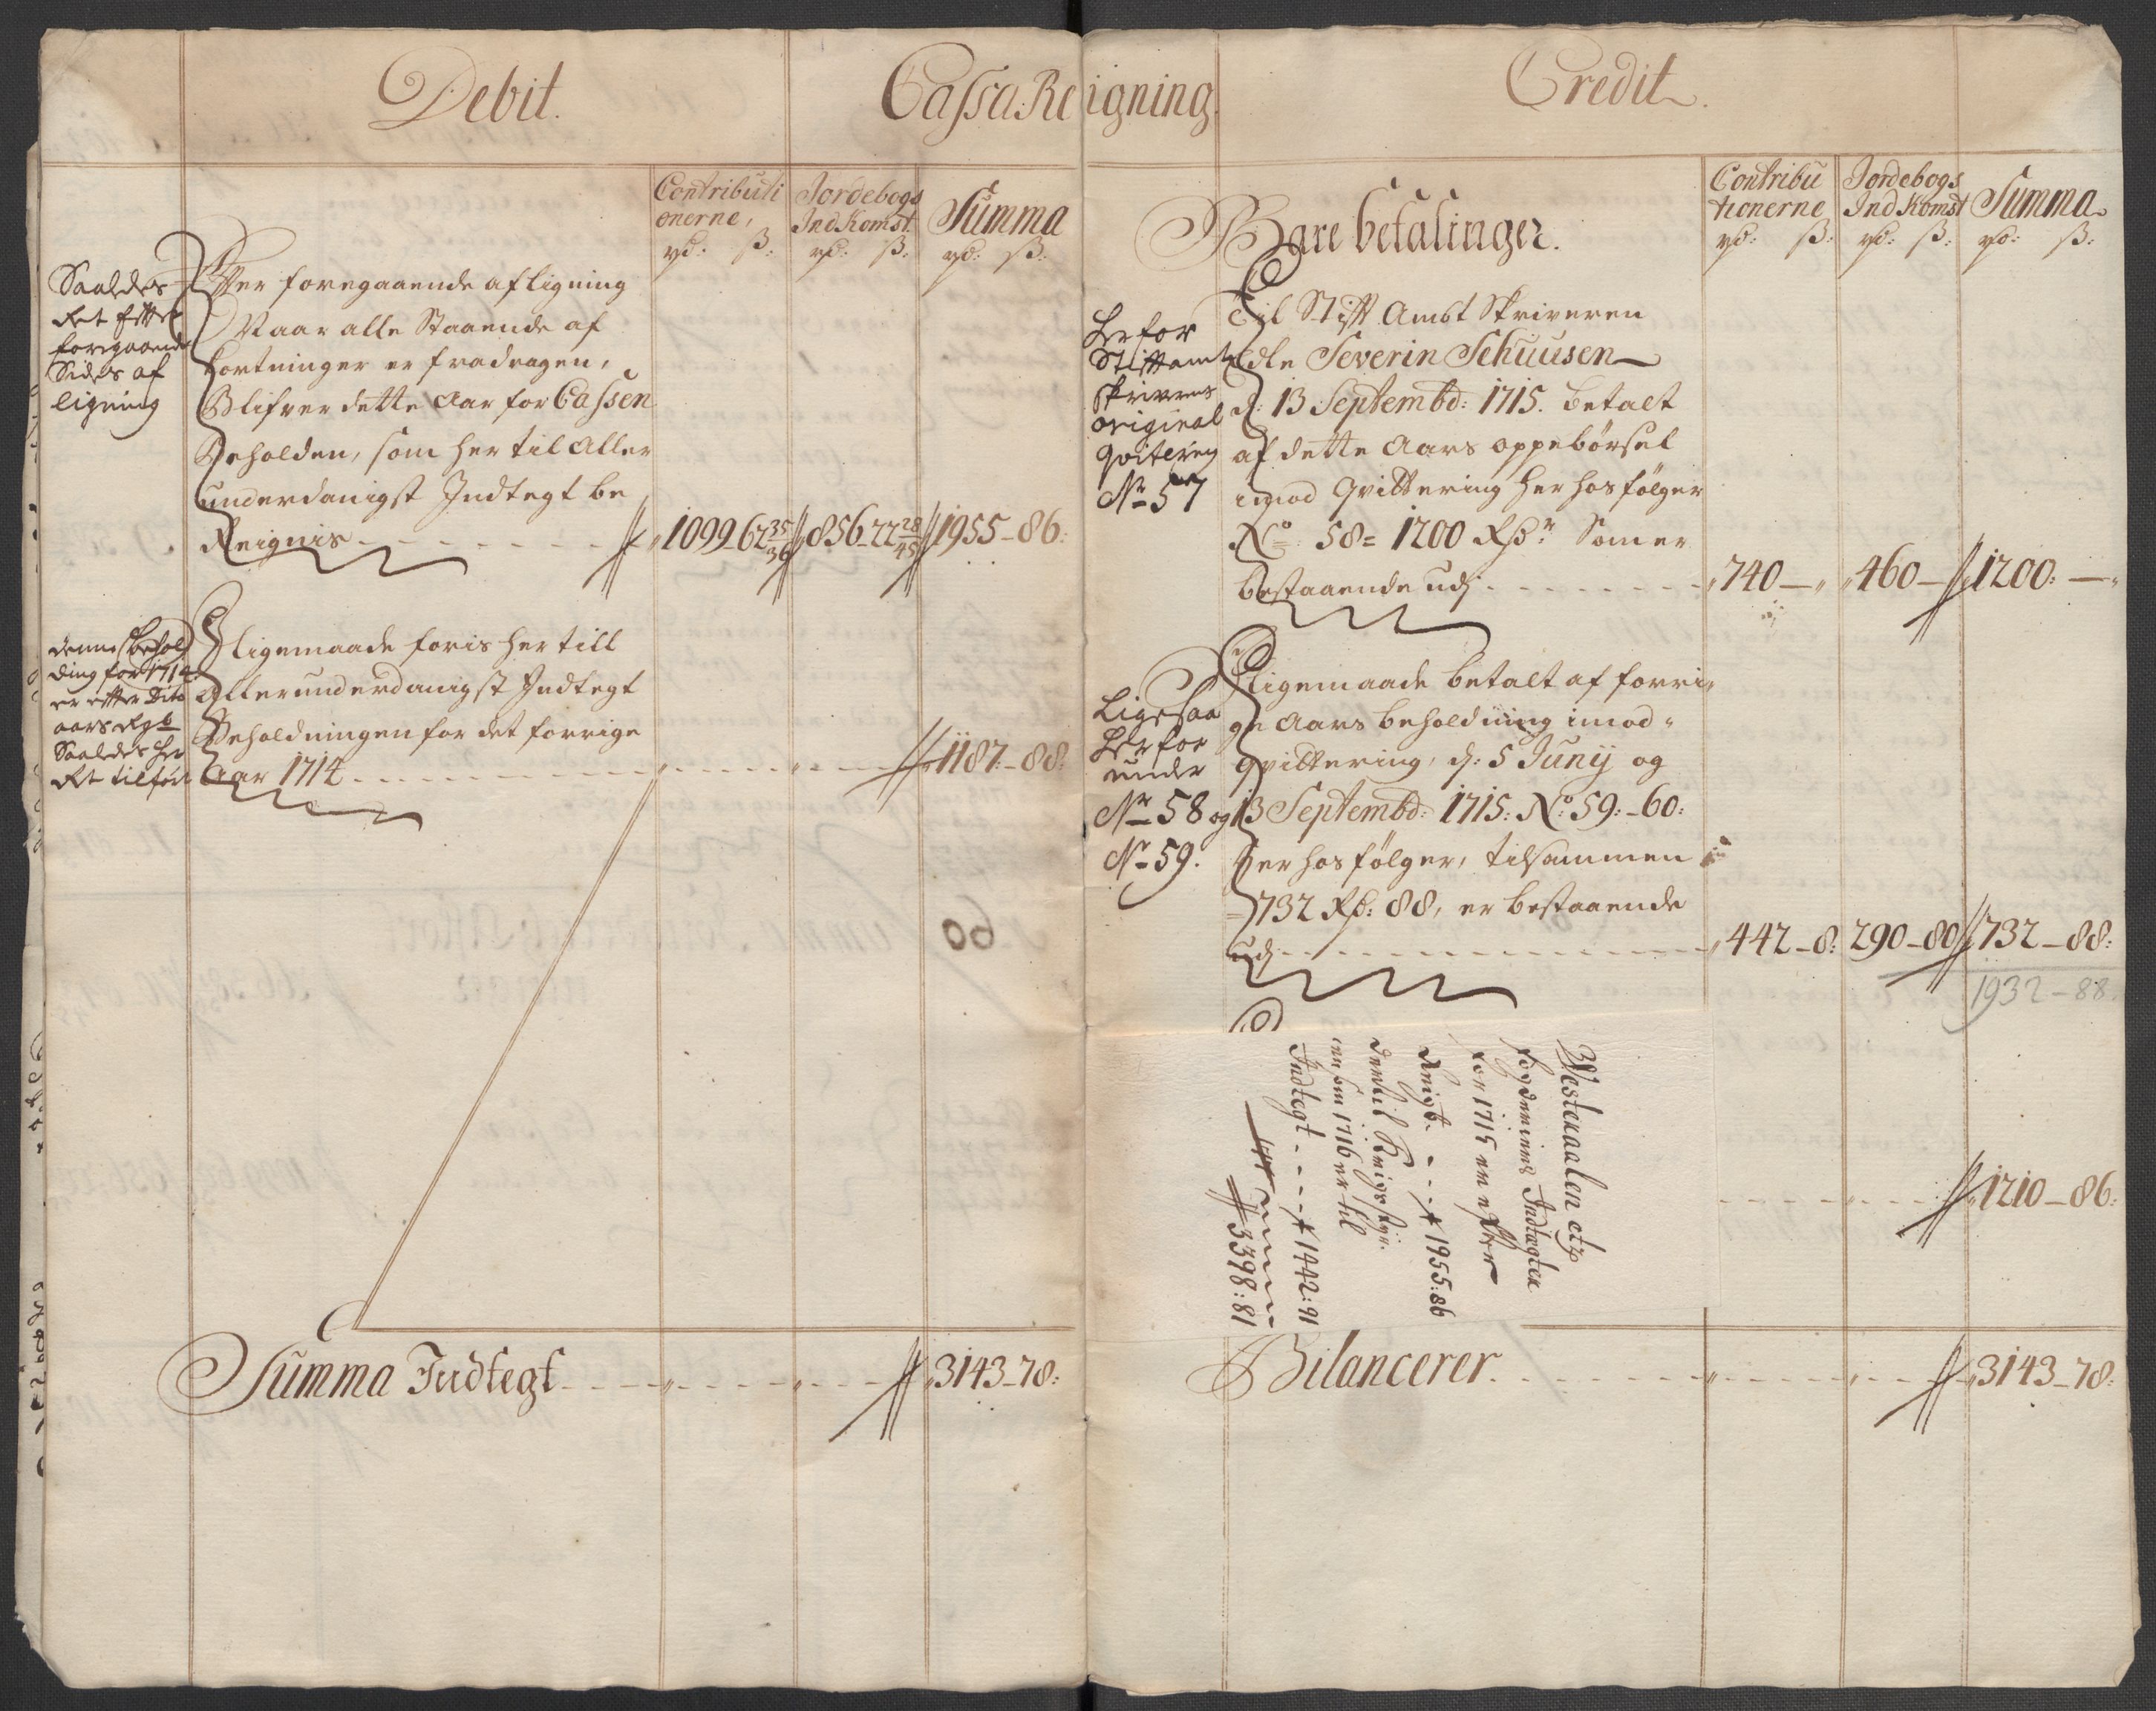 Debit.
Cassa Reigning.
Credit.
Contributi
onerne,
rd: ß:
Jordebogs
Indkomst.
rd: ß:
Summa
rd: ß:
Saaledes
Ret efter
foregaaende
Sides af
ligning
Efter foregaaende afligning
Naar alle Staaende af
kortninger er fradragen,
Blifver dette Aar for Cassen
Beholden, som her til Aller
underdanigst Indtegt be
Reignis - - - 1099-62 35/36 856-22 28/45 1955-86:
denne behol
ding for 1714
er efter dito
aars Rgb
Saaledes her
Ret tilført
Ligemaade føris her till
Allerunderdanigst Indtegt
Beholdningen for det forrige
Aar 1714 - - - 1187-88:
60
Summa Indtegt - - - 3143-78:
Contribu
tionerne
rd: ß:
Jordebogs
Indkomst
rd: ß:
Summa
rd: ß:
Bare betalinger.
Herfor
Stiftamt
skrivers
original
qvitering
No 57
Til Stift Ambt Skriveren
Edle Severin Schuusen
d: 13 Septembd: 1715. betalt
af dette Aars oppebørsel
imod Qvittering her hos følger
No 58 = 1200 Rdr Som er
bestaaende udj - - - 740 - 460 - 1200: -
Ligesaa
Herfor
under
No 58 og
No 59.
Ligemaade betalt af forri-
ge Aars beholdning imod
qvittering, d: 5 Junij og
13 Septembd: 1715: No: 59: -60:
her hos følger, tilsammen
732 Rd: 88, er bestaaende
udj - - - 442-8: 290-80 732-88:
1932-88.
Westeraalen etz
fogderiens Indtegter
for 1715 er efter
Reigb. - - 1955:86
dertil
som 1716 er til
Indtegt - - - 1442:91
3398:81
1210-86:
Bilancerer - - - 3143-78: